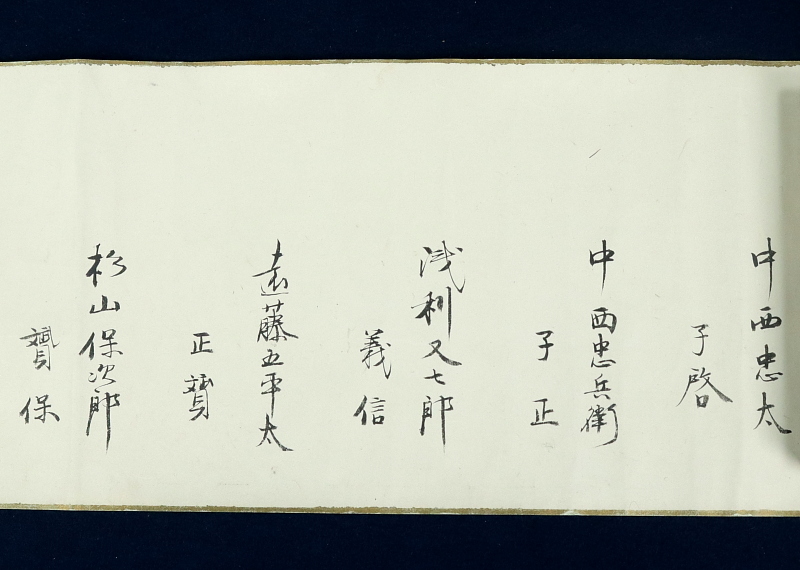 中西忠太
子啓
中西忠兵衛
子正
浅利又七郎
義信
遠藤五平太
正贇
杉山保次郎
贇保